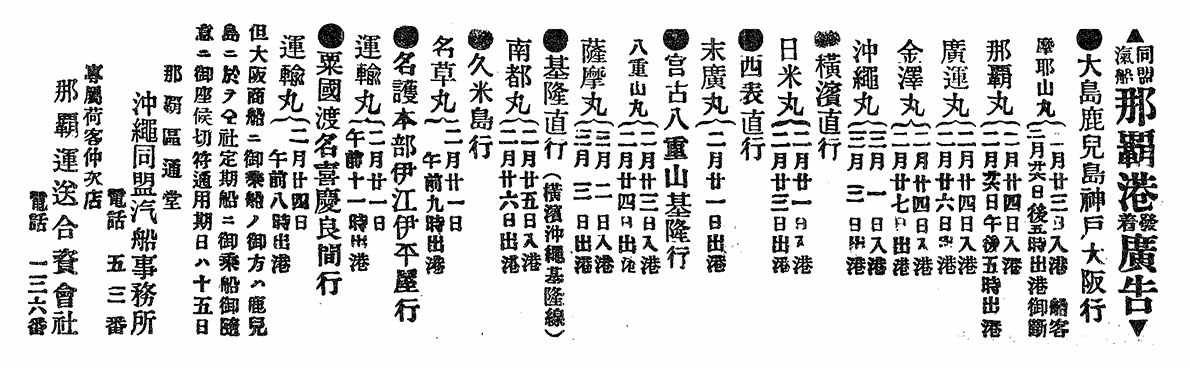 ▲同盟汽船那覇港發着廣告▼
●大島鹿兒島神戸大阪行
摩耶山丸{二月廿三日入港 船客
二月廿六日後五時出港御斷
那覇丸{二月廿四日入港
二月廿六日午後五時出港
廣運丸{二月廿四日入港
二月廿六日出港
金澤丸{二月廿四日入港
二月廿七日出港
沖繩丸{三月一日入港
三月三日出港
●横濱直行
日米丸{二月廿一日入港
二月廿三日出港
●西表直行
末廣丸{二月廿一日出港
●宮古八重山基隆行
八重山丸{二月廿三日入港
二月廿四日出港
薩摩丸{三月一日入港
三月二日出港
●基隆直行(横濱沖繩基隆線)
南都丸{二月廿五日入港
二月廿六日出港
●久米島行
名草丸{二月廿一日
午前九時出港
●名護本部伊江伊平屋行
運輸丸{二月廿一日
午前十一時出港
●粟國渡名喜慶良間行
運輸丸{二月廿四日
午前八時出港
但大阪商船ニ御乘船ノ御方ハ鹿兒
島ニ於テ仝社定期船ニ御乘船御隨
意ニ御座候切符通用期日ハ十五日
那覇區通堂
沖繩同盟汽船事務所
電話 五三番
專屬荷客仲次店
那覇運送合資會社
電話 一三六番